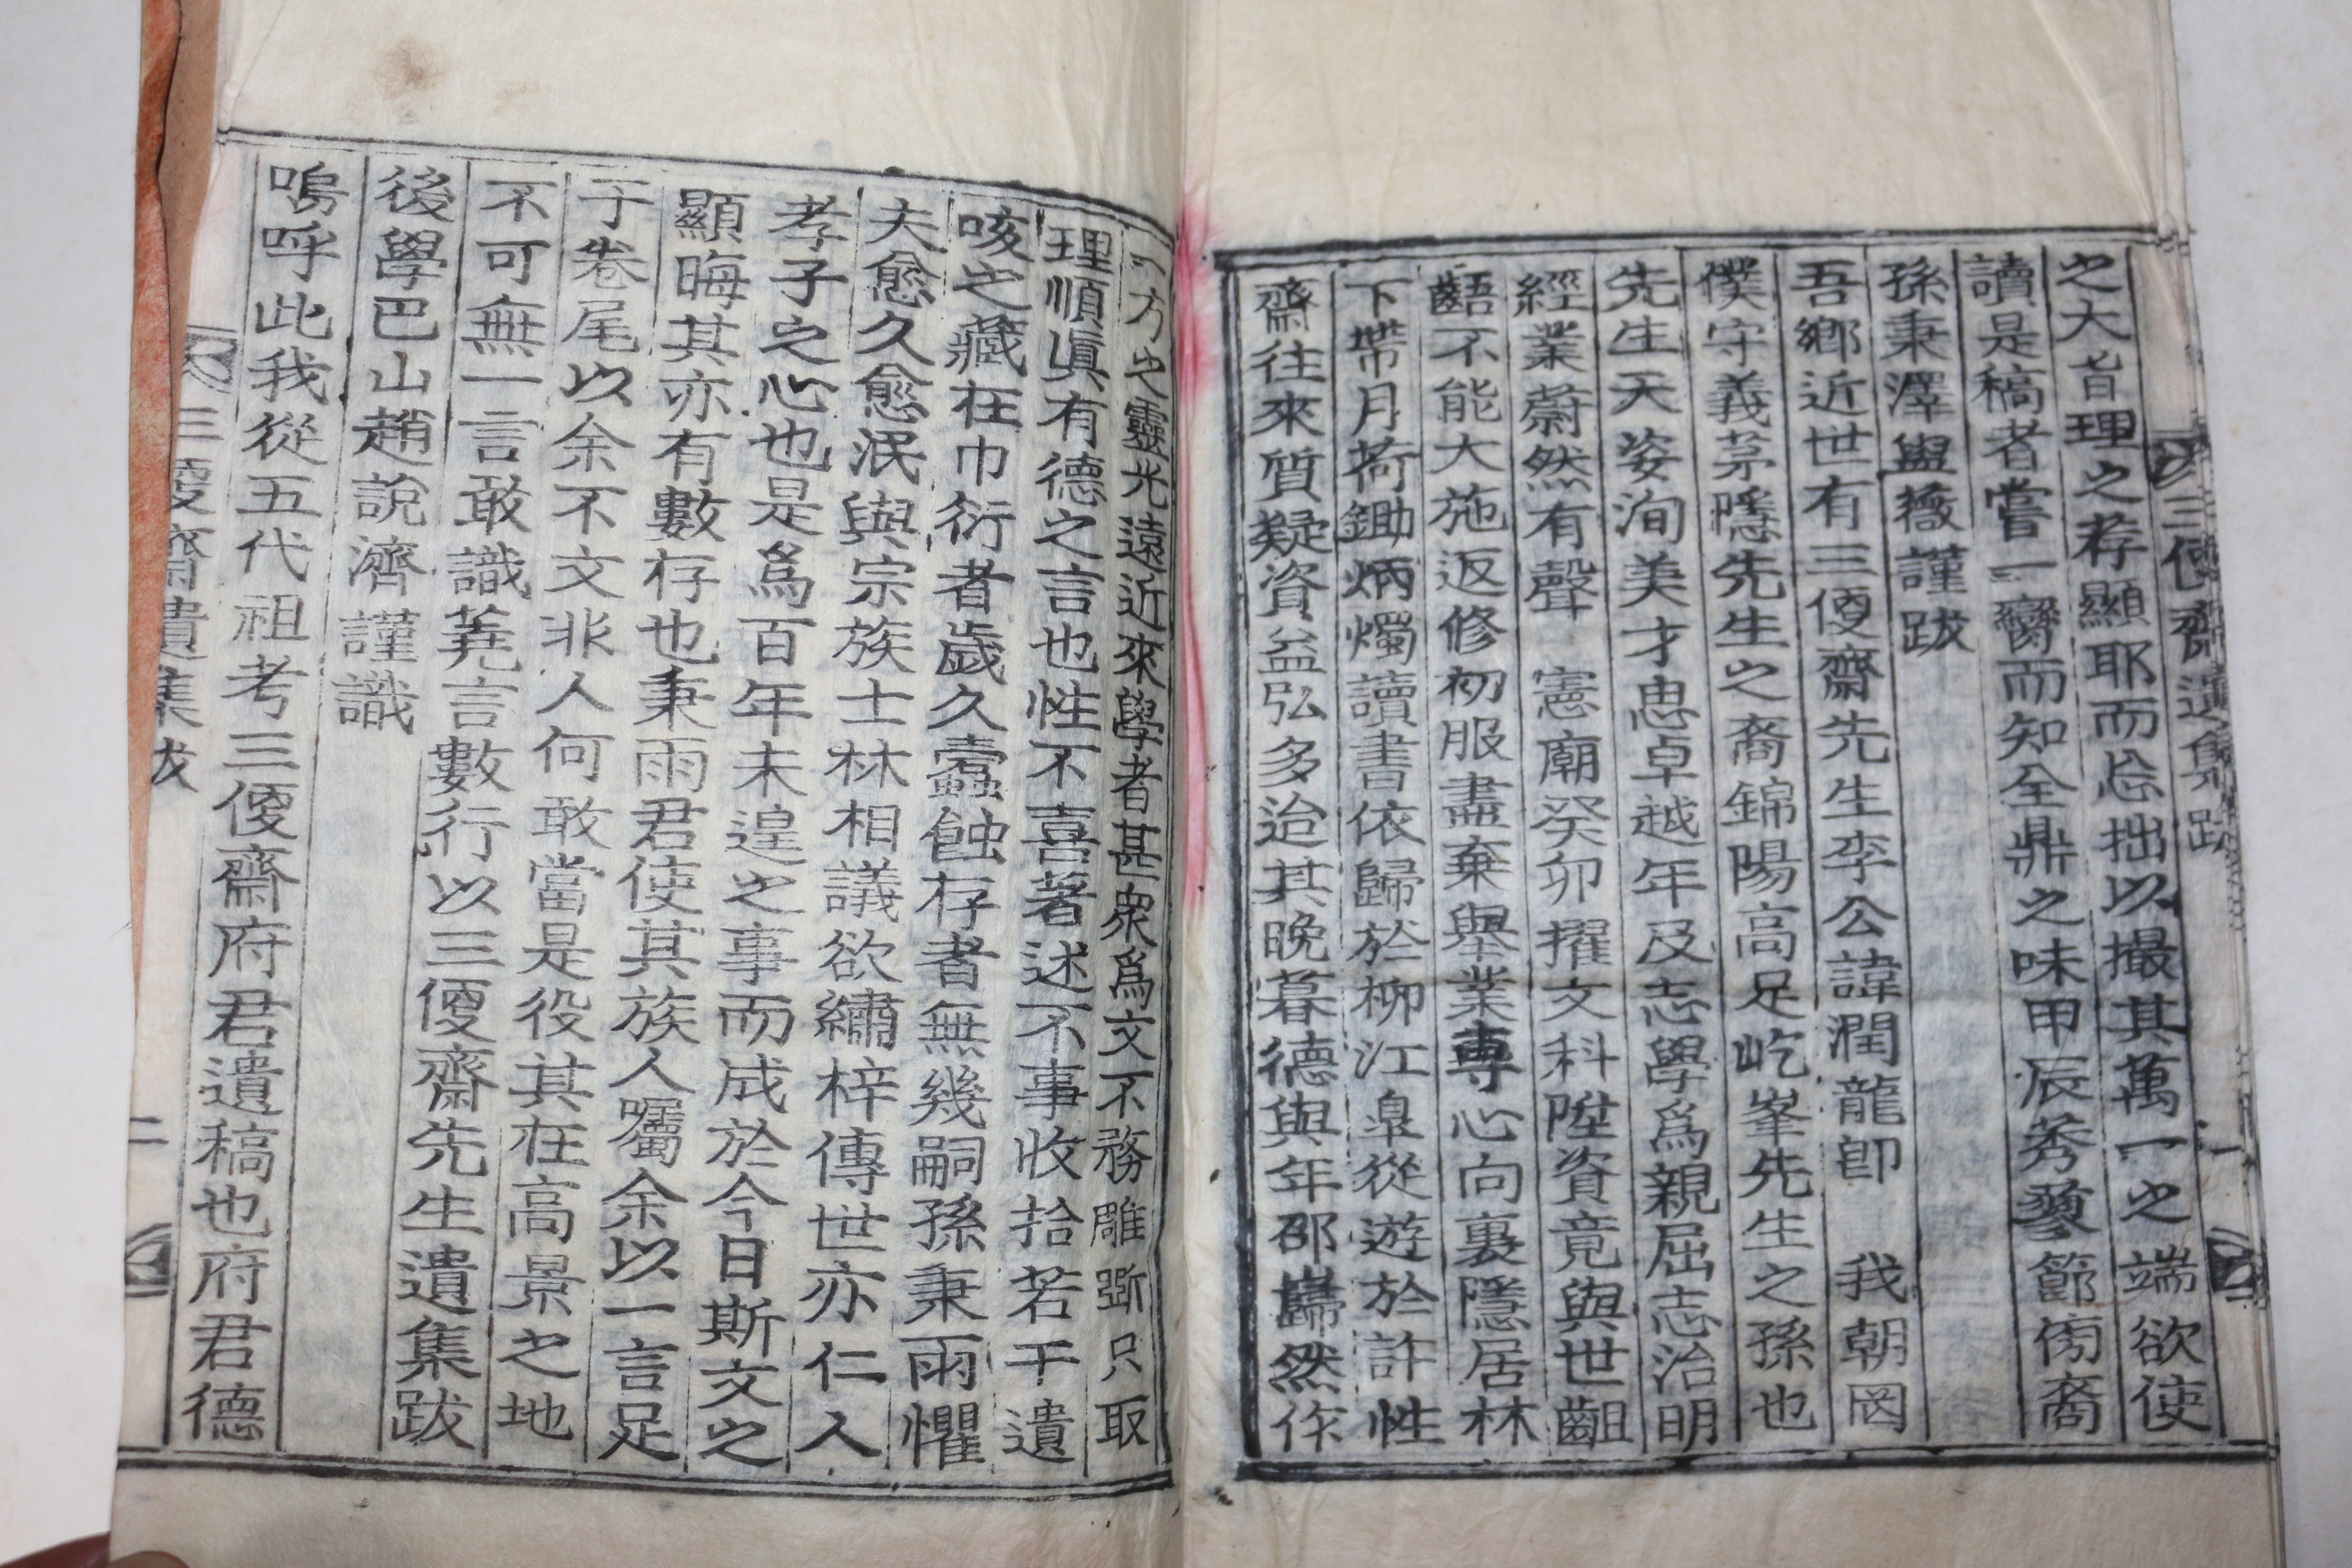 三㥠齋遺集跋 一
之大旨理之存顯耶而忘拙以撮其萬一之端欲使
讀是稿者嘗一臠而知全鼎之味甲辰莠蓼節傍裔
孫秉澤盥薇謹跋
吾鄉近世有三㥠齋先生李公諱潤龍卽 我朝罔
僕守義茅隱先生之裔錦陽高足屹峯先生之孫也
先生天姿洵美才思卓越年及志學爲親屈志治明
經業蔚然有聲 憲廟癸卯擢文科陞資竟與世齟
齬不能大施返修初服盡棄舉業專心向裏隱居林
下帶月荷鋤炳燭讀書依歸於柳江皐從遊於許性
齋往來質疑資益弘多迨其晩暮德與年邵巋然作
一方之靈光遠近來學者甚衆爲文不務雕斲只取
理順眞有德之言也性不喜著述不事收拾若干遺
咳之藏在巾衍者歲久蠹蝕存者無幾嗣孫秉雨懼
夫愈久愈泯與宗族士林相議欲繡梓傳世亦仁人
孝子之心也是爲百年未遑之事而成於今日斯文之
顯晦其亦有數存也秉雨君使其族人囑余以一言足
于卷尾以余不文非人何敢當是役其在高景之地
不可無一言敢識蕘言數行以三㥠齋先生遺集跋
後學巴山趙說濟謹識
嗚呼此我從五代祖考三㥠齋府君遺稿也府君德
三㥠齋遺集跋 二